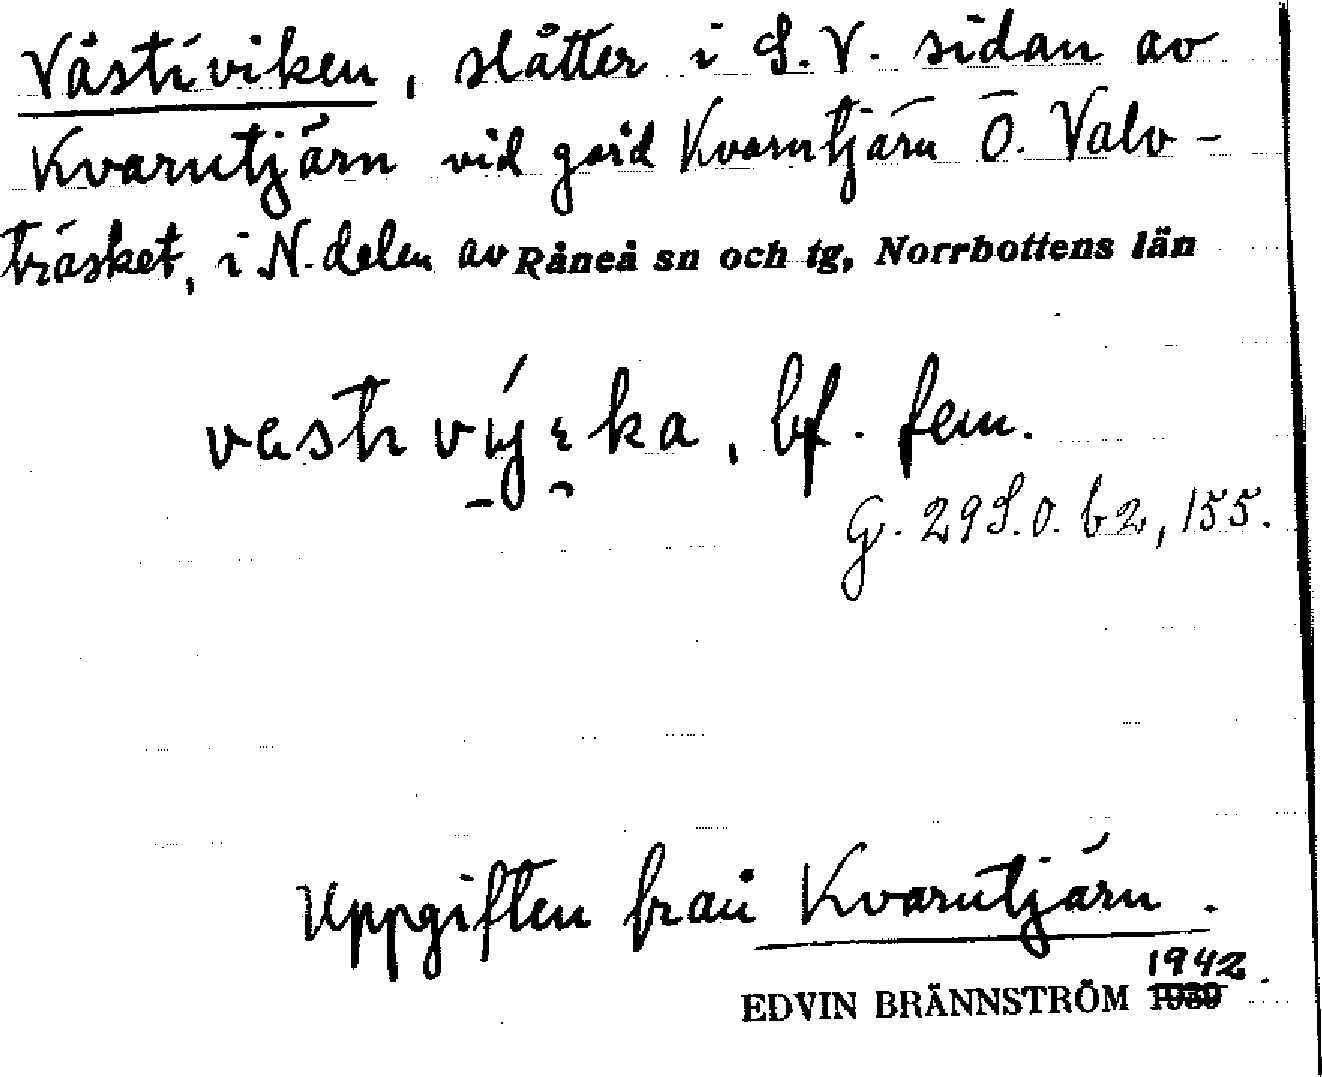 Västiviken, slåtter i S.V. sidan av
Kvarntjärn vid gård Kvarntjärn Ö. Valv-
träsket, i N. delen av Råneå sn och tg, Norrbottens län
bf. fem.
G. 29 S.O. b2, 155.
Uppgiften från Kvarntjärn.
1942
EDVIN BRÄNNSTRÖM 1939